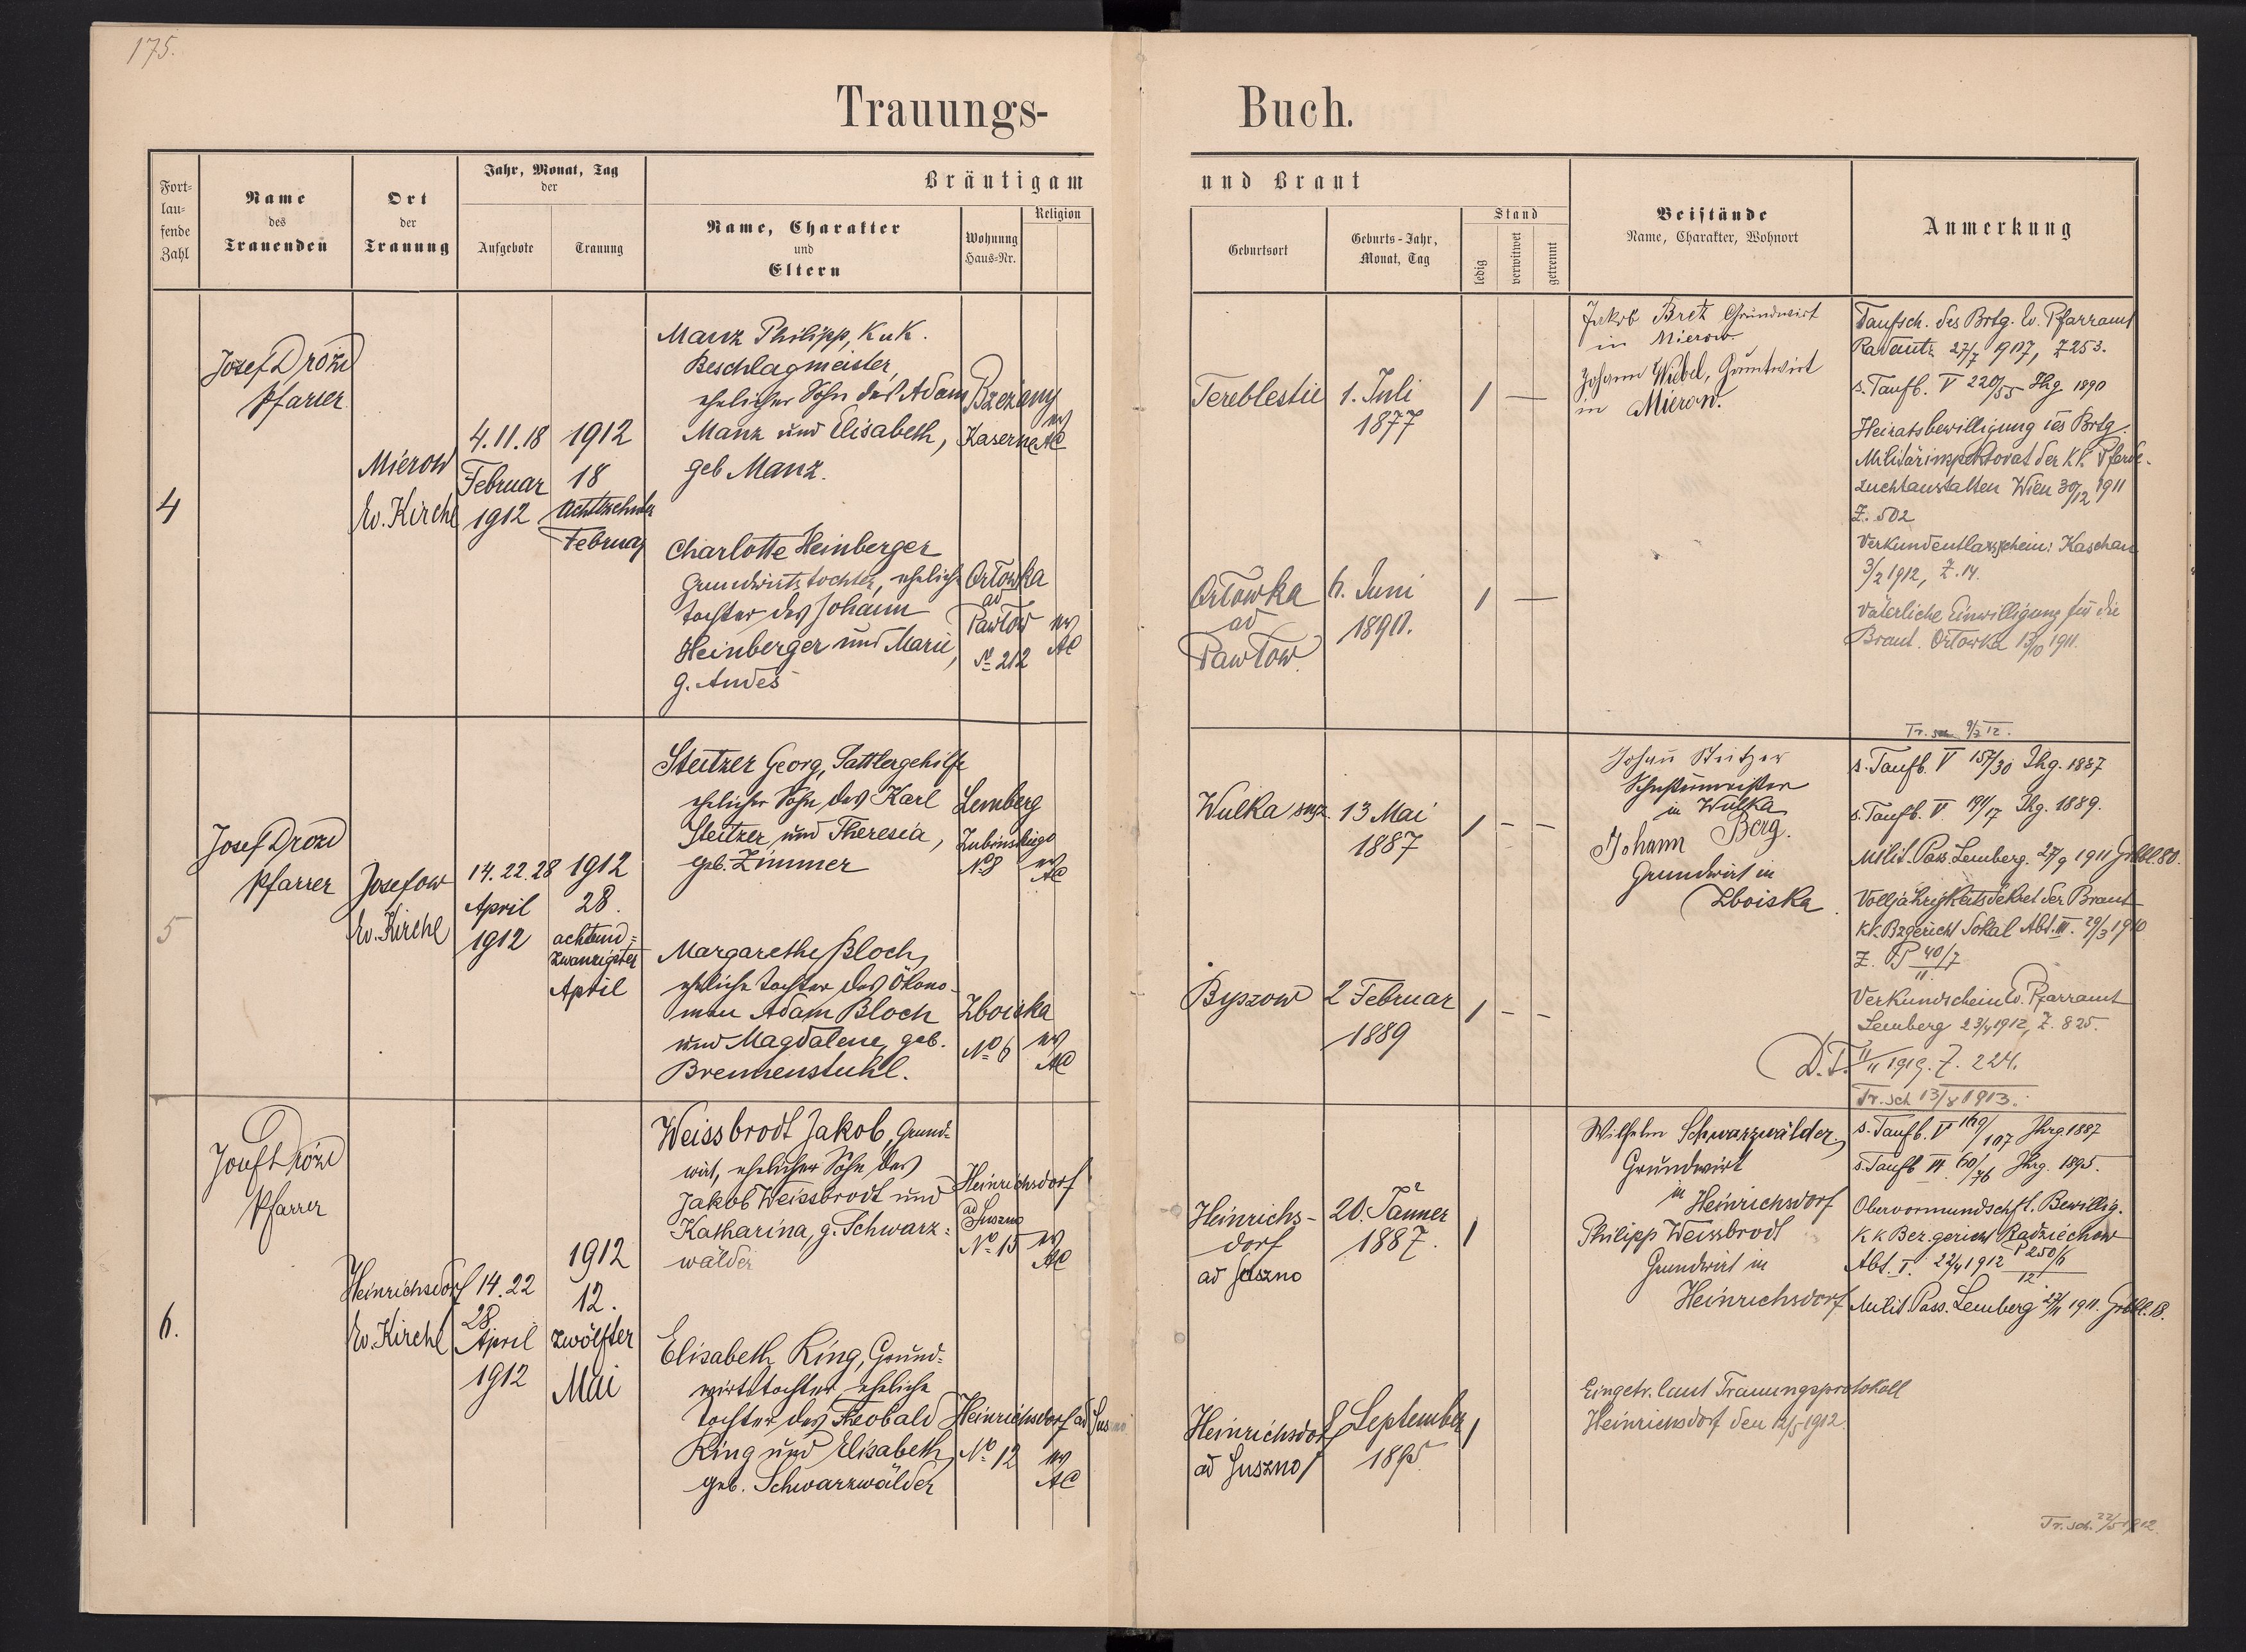 175.
Trauungs-Buch.
Fort-
lau-
fende
Zahl
Name
des
Trauenden
Ort
der
Trauung
Jahr, Monat, Tag
der
Aufgebote
Trauung
Bräutigam und Braut
Name, Charakter
und
Eltern
Wohnung
Haus-Nr.
Religion
Geburtsort
Geburts-Jahr,
Monat, Tag
Stand
ledig
verwitwet
getrennt
Beistände
Name, Charakter, Wohnort
Anmerkung
4
Josef Drozd
Pfarrer
Mierow
Ev. Kirche
4.11.18
Februar
1912
1912
18
achtzehnter
Februar
Manz Philipp, K u K.
Beschlagmeister,
ehelicher Sohn des Adam
Manz und Elisabeth,
geb Manz.
Brzeżany
Kaserne
ev
AC
Tereblestie
1. Juli
1877
Charlotte Heinberger
Grundwirtstochter, eheliche
Tochter des Johann
Heinberger und Marie,
g. Andes
Ortowka
ad
Pawtow
No 212
ev
AC
Ortowka
ad
Pawtow.
6. Juni
1890.
Jakob Bretz Grundwirt
in Mierow.
Johann Wiebel, Grundwirt
in Mierow.
Taufsch. des Brtg. Ev. Pfarramt
Radautz 27/7 1907, Z 253.
s. Taufb. V 220/55 Jhg 1890
Heiratsbewilligung des Brtg.
Militärinspektorat der KK. Pferde-
zuchtanstalten Wien 30/12 1911
Z. 502
Verkündentlassschein: Kaschau
3/2 1912, Z. 14.
Väterliche Einwilligung für die
Braut. Ortowka 13/10 1911.
5
Josef Drozd
Pfarrer
Josefow
Ev. Kirche
14.22.28
April
1912
1912
28.
achtund-
zwanzigster
April
Steitzer Georg, Sattlergehilfe
ehelicher Sohn des Karl
Steitzer und Theresia,
geb. Zimmer
Lemberg
No 8
ev
AC
Wulka
13 Mai
1887
Margarethe Bloch,
eheliche Tochter des Ökono-
men Adam Bloch
und Magdalene, geb.
Brennenstuhl.
Zboiska
No 6
ev
AC
Byszow
2 Februar
1889
Johann Steitzer
Schustermeister
in Wulka
Johann Berg.
Grundwirt in
Zboiska
s. Taufb. V 157/30 Jhg. 1887
s. Taufb. V 191/17 Jhg. 1889.
Milit. Pass. Lemberg. 27/9 1911
Volljährigkeitsdekret der Braut
KK. Bzgericht Sokal Abt. III. 29/3 1910
Z. P 40/7
11
Verkundschein Ev. Pfarramt
Lemberg 23/4 1912, Z. 825.
D.T. 11/11 1919. Z. 224.
Tr. sch 13/8 1913.
6.
Josef Drozd
Pfarrer
Heinrichsdorf
Ev. Kirche
14.22
28
April
1912
1912
12.
zwölfter
Mai
Weissbrodt Jakob, Grund-
wirt, ehelicher Sohn des
Jakob Weissbrodt und
Katharina, g. Schwarz-
wälder
Heinrichsdorf
ad Suszno
No 15
ev
AC
Heinrichs-
dorf
ad Suszno
20. Jänner
1887.
Elisabeth Ring, Grund-
wirtstochter, eheliche
Tochter des Theobald
Ring und Elisabeth,
geb. Schwarzwälder
Heinrichsdorf ad Suszno
No 12
ev
AC
Heinrichsdorf
ad Suszno
September
1895
Wilhelm Schwarzwälder,
Grundwirt
in Heinrichsdorf
Philipp Weissbrodt
Grundwirt in
Heinrichsdorf
Eingetr. laut Trauungsprotokoll
Heinrichsdorf den 12/5 1912.
s. Taufb. V 169/107 Jhrg 1887
s. Taufb VI 60/76 Jhrg. 1895.
Obervormundschftl. Bewillig.
K K Bez. gericht Radziechow
Abt. I. 22/4 1912 P 250/6
12
Milit. Pass. Lemberg 27/11 1911. Grbbl. 18.
Tr. sch. 22/5 1912.